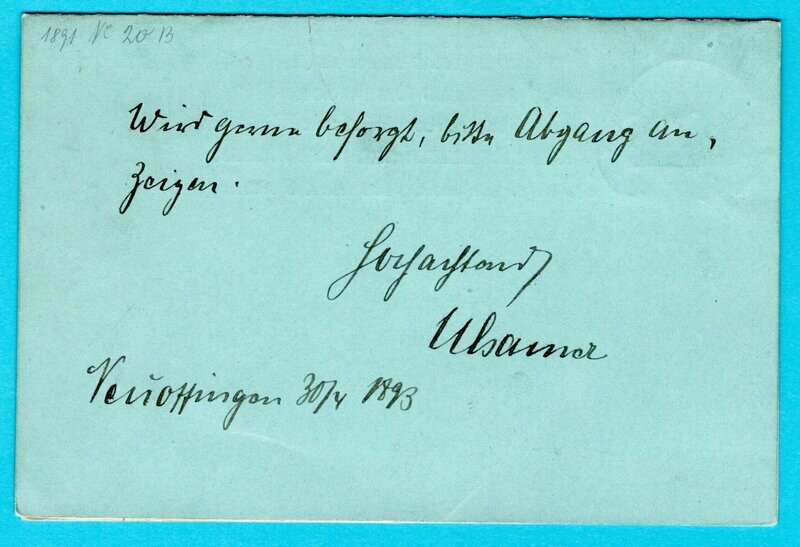 1891 No 20 B
Wird gerne besorgt, bitte Abgang an-
zeigen.
Hochachtend
Ulsamer
Neuoffingen 30/4 1893